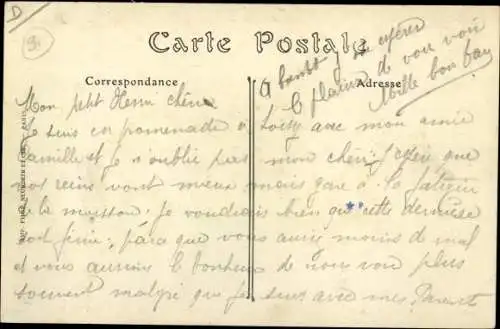 D
Carte Postale
Correspondance
Adresse
A bientôt j'espère
le plaisir de vous voir
Mille bon bai
Mon petit Henri chéri
Je suis en promenade à Loisy avec mon amie
Camille et je n'oublie pas mon chéri j'espère que
vos reins vont mieux mais gare à la fatigue
de la moisson; je voudrais bien que cette dernière
soit finie; parce que vous auriez moins de mal
et vous aurions le bonheur de nous voir plus
souvent malgré que je suis avec mes Parents